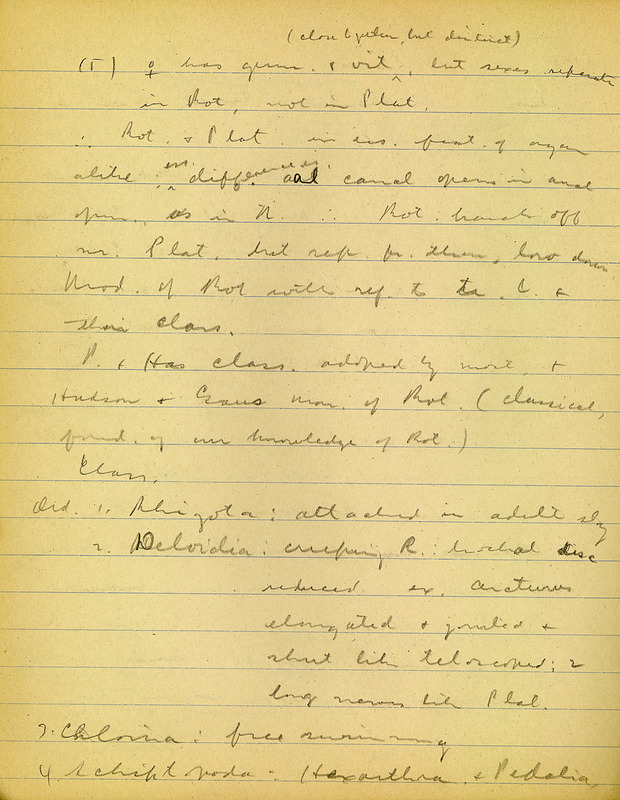 (close together, but distinct)
(5) ♀ has germ. & vit, but sexes separate
in Rot, not in Plat.
∴ Rot. & Plat. in ess. feat. of organ
alike; ess. differences. canal opens in anal
open. as in N. ∴ Rot. branch off
nr. Plat, but sep. fr. them, low down
of Rot with ref. to &
their class.
& Has class. adopted by most, &
Hudson & Goss mon. of Rot. (classical,
found. of our knowledge of Rot.)
Class.
Ord. 1. Rhizota: attached in adult stg
2. Deloidia: creeping R. trochal disc
reduced ex. arcturus
elongated & jointed &
shut like telescoped; 2
long nerves like Plat.
3. Ploima: free swimming
4. Schirtopoda: Hexarthra & Pedalia